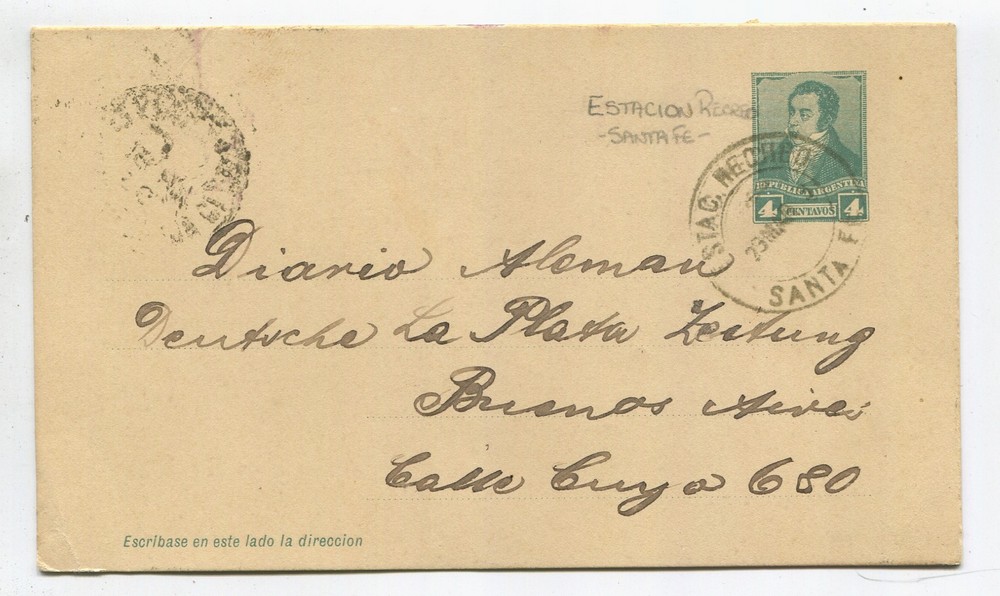 ESTACION RECREO
-SANTA FE-
REPUBLICA ARGENTINA
4 CENTAVOS 4
STAC. RECREO
23 MA
SANTA F
Diario Aleman
Deutsche La Plata Zeitung
Buenos Aires
Calle Cuyo 680
Escribase en este lado la direccion